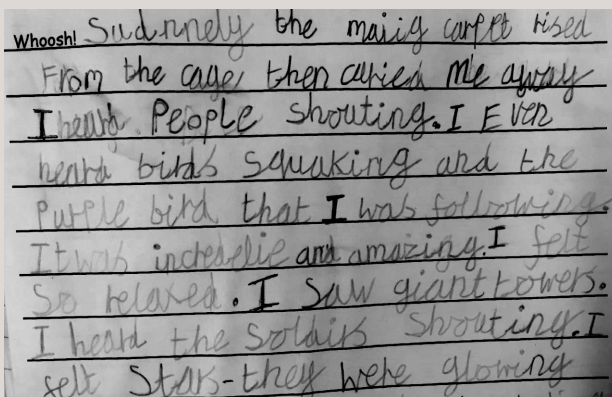 Whoosh! Sudnnely the maiig carpet rised
From the cage, then caried me away
I heard People shouting. I Even
heard birds squaking and the
Purple bird that I was following.
It was incredelie and amazing. I felt
So relaxed. I Saw giant towers.
I heard the Soldirs Shouting. I
felt Stars-they were glowing